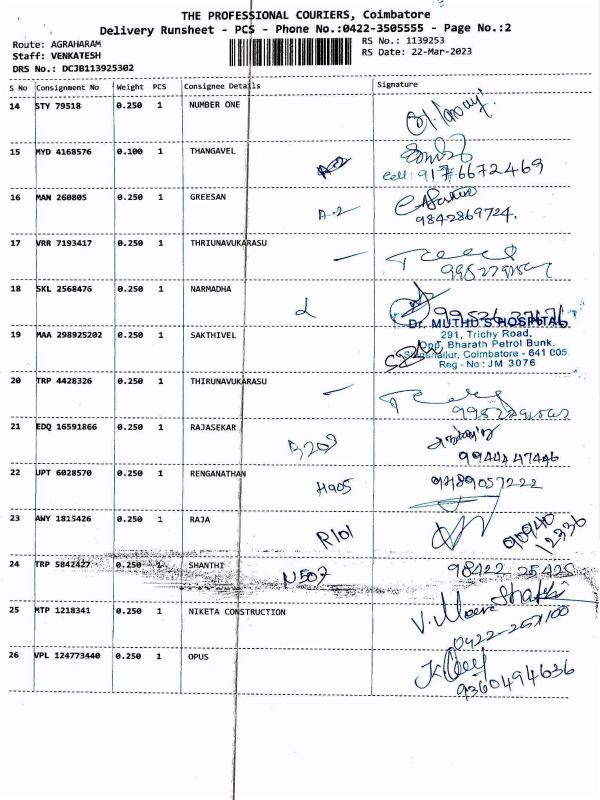 THE PROFESSIONAL COURIERS, Coimbatore
Delivery Runsheet - PCS - Phone No.:0422-3505555 - Page No.:2
Route: AGRAHARAM
Staff: VENKATESH
DRS No.: DCJB113925302
RS No.: 1139253
RS Date: 22-Mar-2023
S No Consignment No Weight PCS Consignee Details Signature
14 STY 79518 0.250 1 NUMBER ONE
15 MYD 4168576 0.100 1 THANGAVEL
Cell: 9176672469
16 MAN 260805 0.250 1 GREESAN A-2
9842869724.
17 VRR 7193417 0.250 1 THRIUNAVUKARASU
18 SKL 2568476 0.250 1 NARMADHA
Dr. MUTHU'S HOSPITAL
19 MAA 298925202 0.250 1 SAKTHIVEL
291, Trichy Road,
Opp. Bharath Petrol Bunk.
Coimbatore - 641 005
Reg - No : JM 3076
20 TRP 4428326 0.250 1 THIRUNAVUKARASU
21 EDQ 16591866 0.250 1 RAJASEKAR B203
9944447446
22 UPT 6028570 0.250 1 RENGANATHAN H905
9489057222
23 AWY 1815426 0.250 1 RAJA R101
90940
12336
24 TRP 5842427 0.250 1 SHANTHI N507
98422 25425
25 MTP 1218341 0.250 1 NIKETA CONSTRUCTION
26 VPL 124773440 0.250 1 OPUS
9360494636